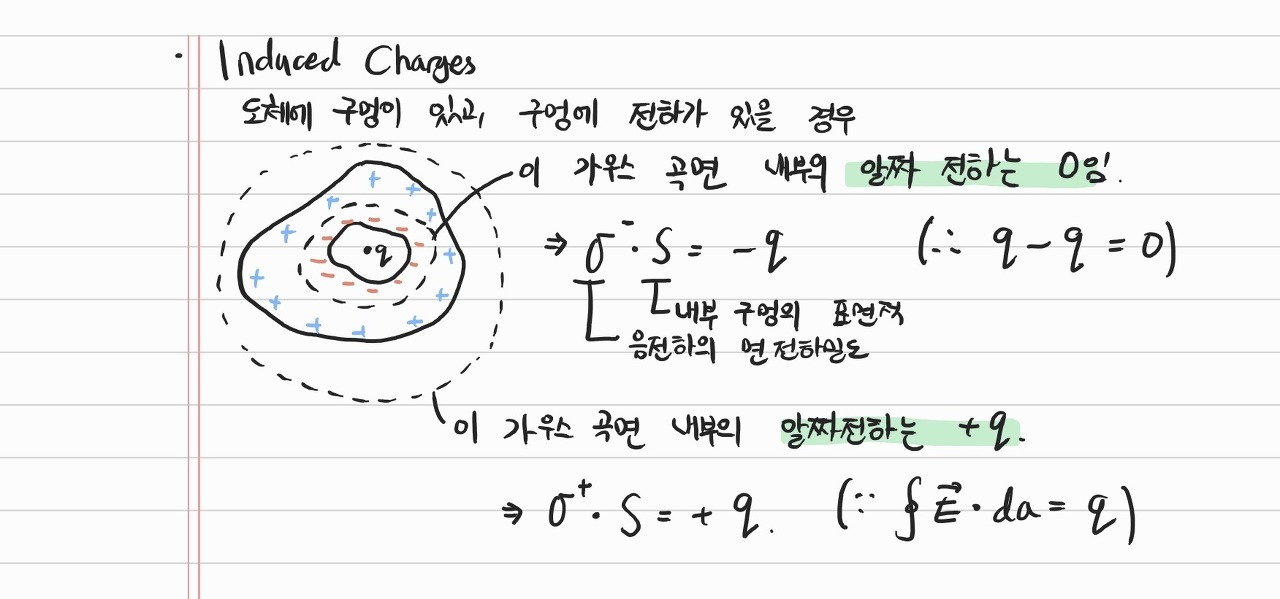 · Induced Charges
도체에 구멍이 있고, 구멍에 전하가 있을 경우
이 가우스 곡면 내부의 알짜 전하는 0임.
+ + + + + + + + + + + +
- - - - - - - - - - -
·q
⇒ σ⁻· S = -q (∵ q - q = 0)
내부 구멍의 표면적
음전하의 면전하밀도
이 가우스 곡면 내부의 알짜전하는 +q.
⇒ σ⁺· S = + q. (∵ ∮ E⃗ · da = q)